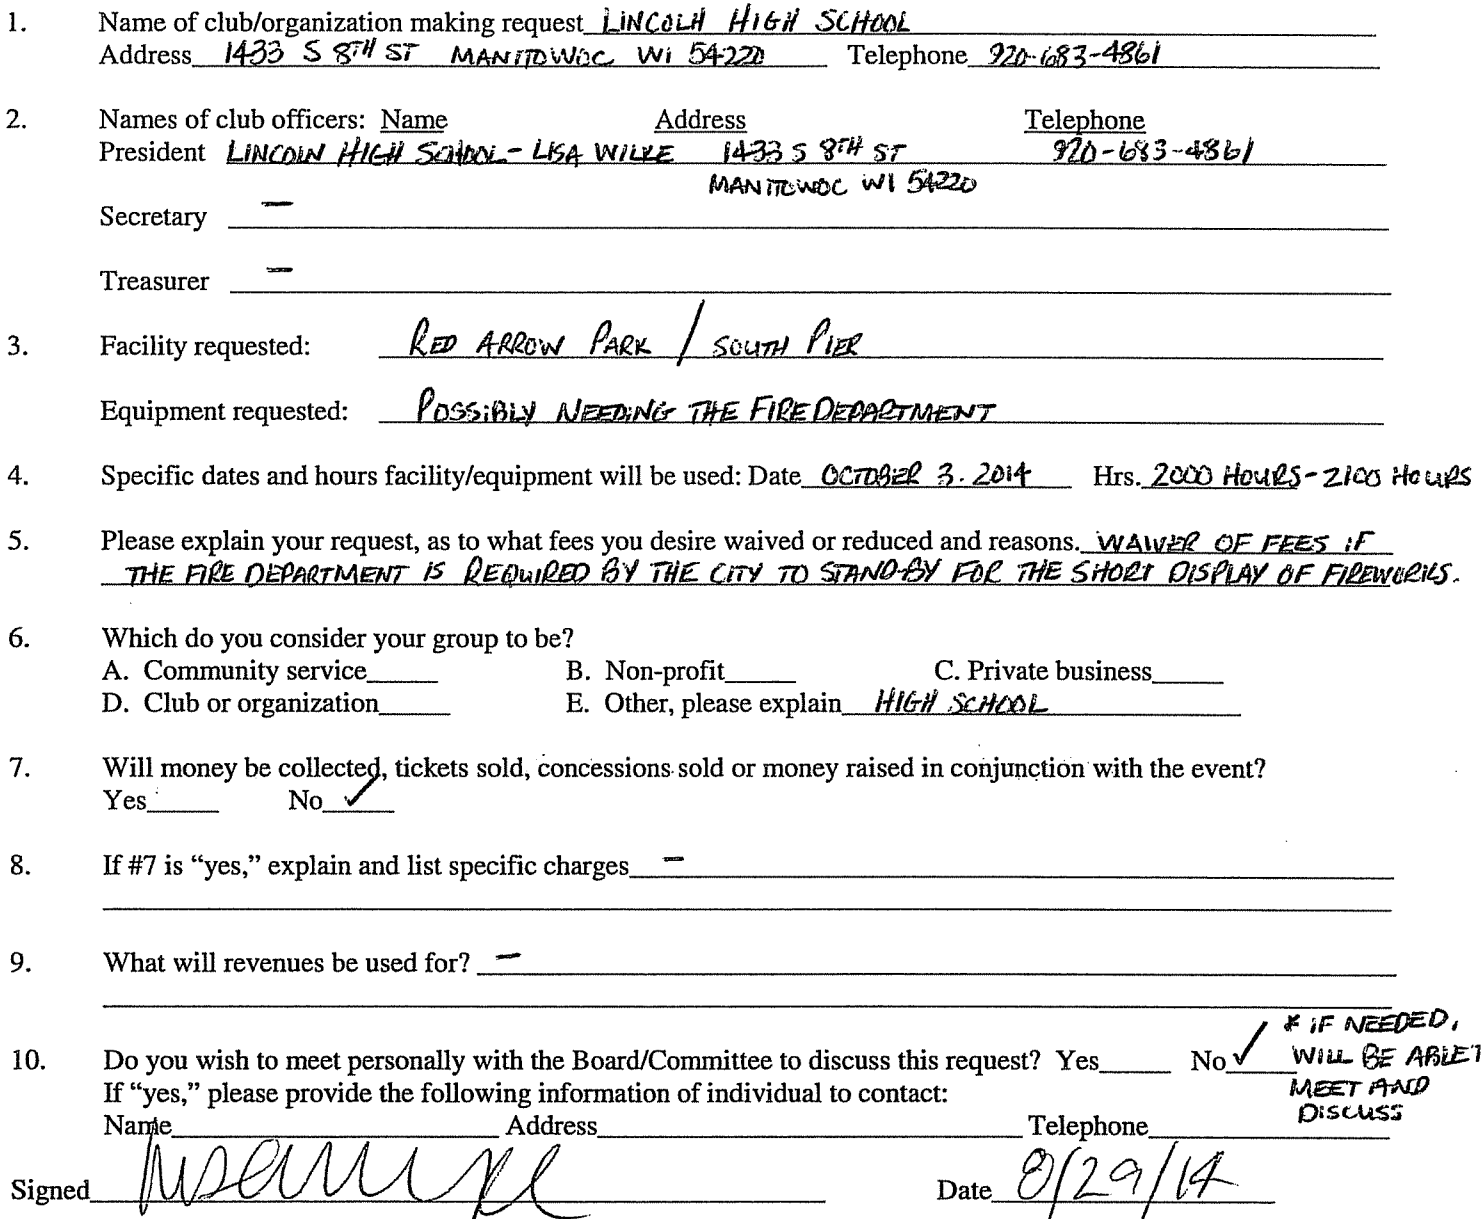 1. Name of club/organization making request LINCOLN HIGH SCHOOL
Address 1433 S 8TH ST MANITOWOC WI 54220 Telephone 920-683-4861
2. Names of club officers: Name Address Telephone
President LINCOLN HIGH SCHOOL - LISA WILKE 1433 S 8TH ST 920-683-4861
MANITOWOC WI 54220
Secretary –
Treasurer –
3. Facility requested: RED ARROW PARK / SOUTH PIER
Equipment requested: POSSIBLY NEEDING THE FIRE DEPARTMENT
4. Specific dates and hours facility/equipment will be used: Date OCTOBER 3. 2014 Hrs. 2000 HOURS - 2100 HOURS
5. Please explain your request, as to what fees you desire waived or reduced and reasons. WAIVER OF FEES IF
THE FIRE DEPARTMENT IS REQUIRED BY THE CITY TO STAND-BY FOR THE SHORT DISPLAY OF FIREWORKS.
6. Which do you consider your group to be?
A. Community service B. Non-profit C. Private business
D. Club or organization E. Other, please explain HIGH SCHOOL
7. Will money be collected, tickets sold, concessions sold or money raised in conjunction with the event?
Yes No ✓
8. If #7 is “yes,” explain and list specific charges –
9. What will revenues be used for? –
* IF NEEDED,
10. Do you wish to meet personally with the Board/Committee to discuss this request? Yes No ✓ WILL BE ABLE
If “yes,” please provide the following information of individual to contact: MEET AND
DISCUSS
Name Address Telephone
Signed Date 8/29/14